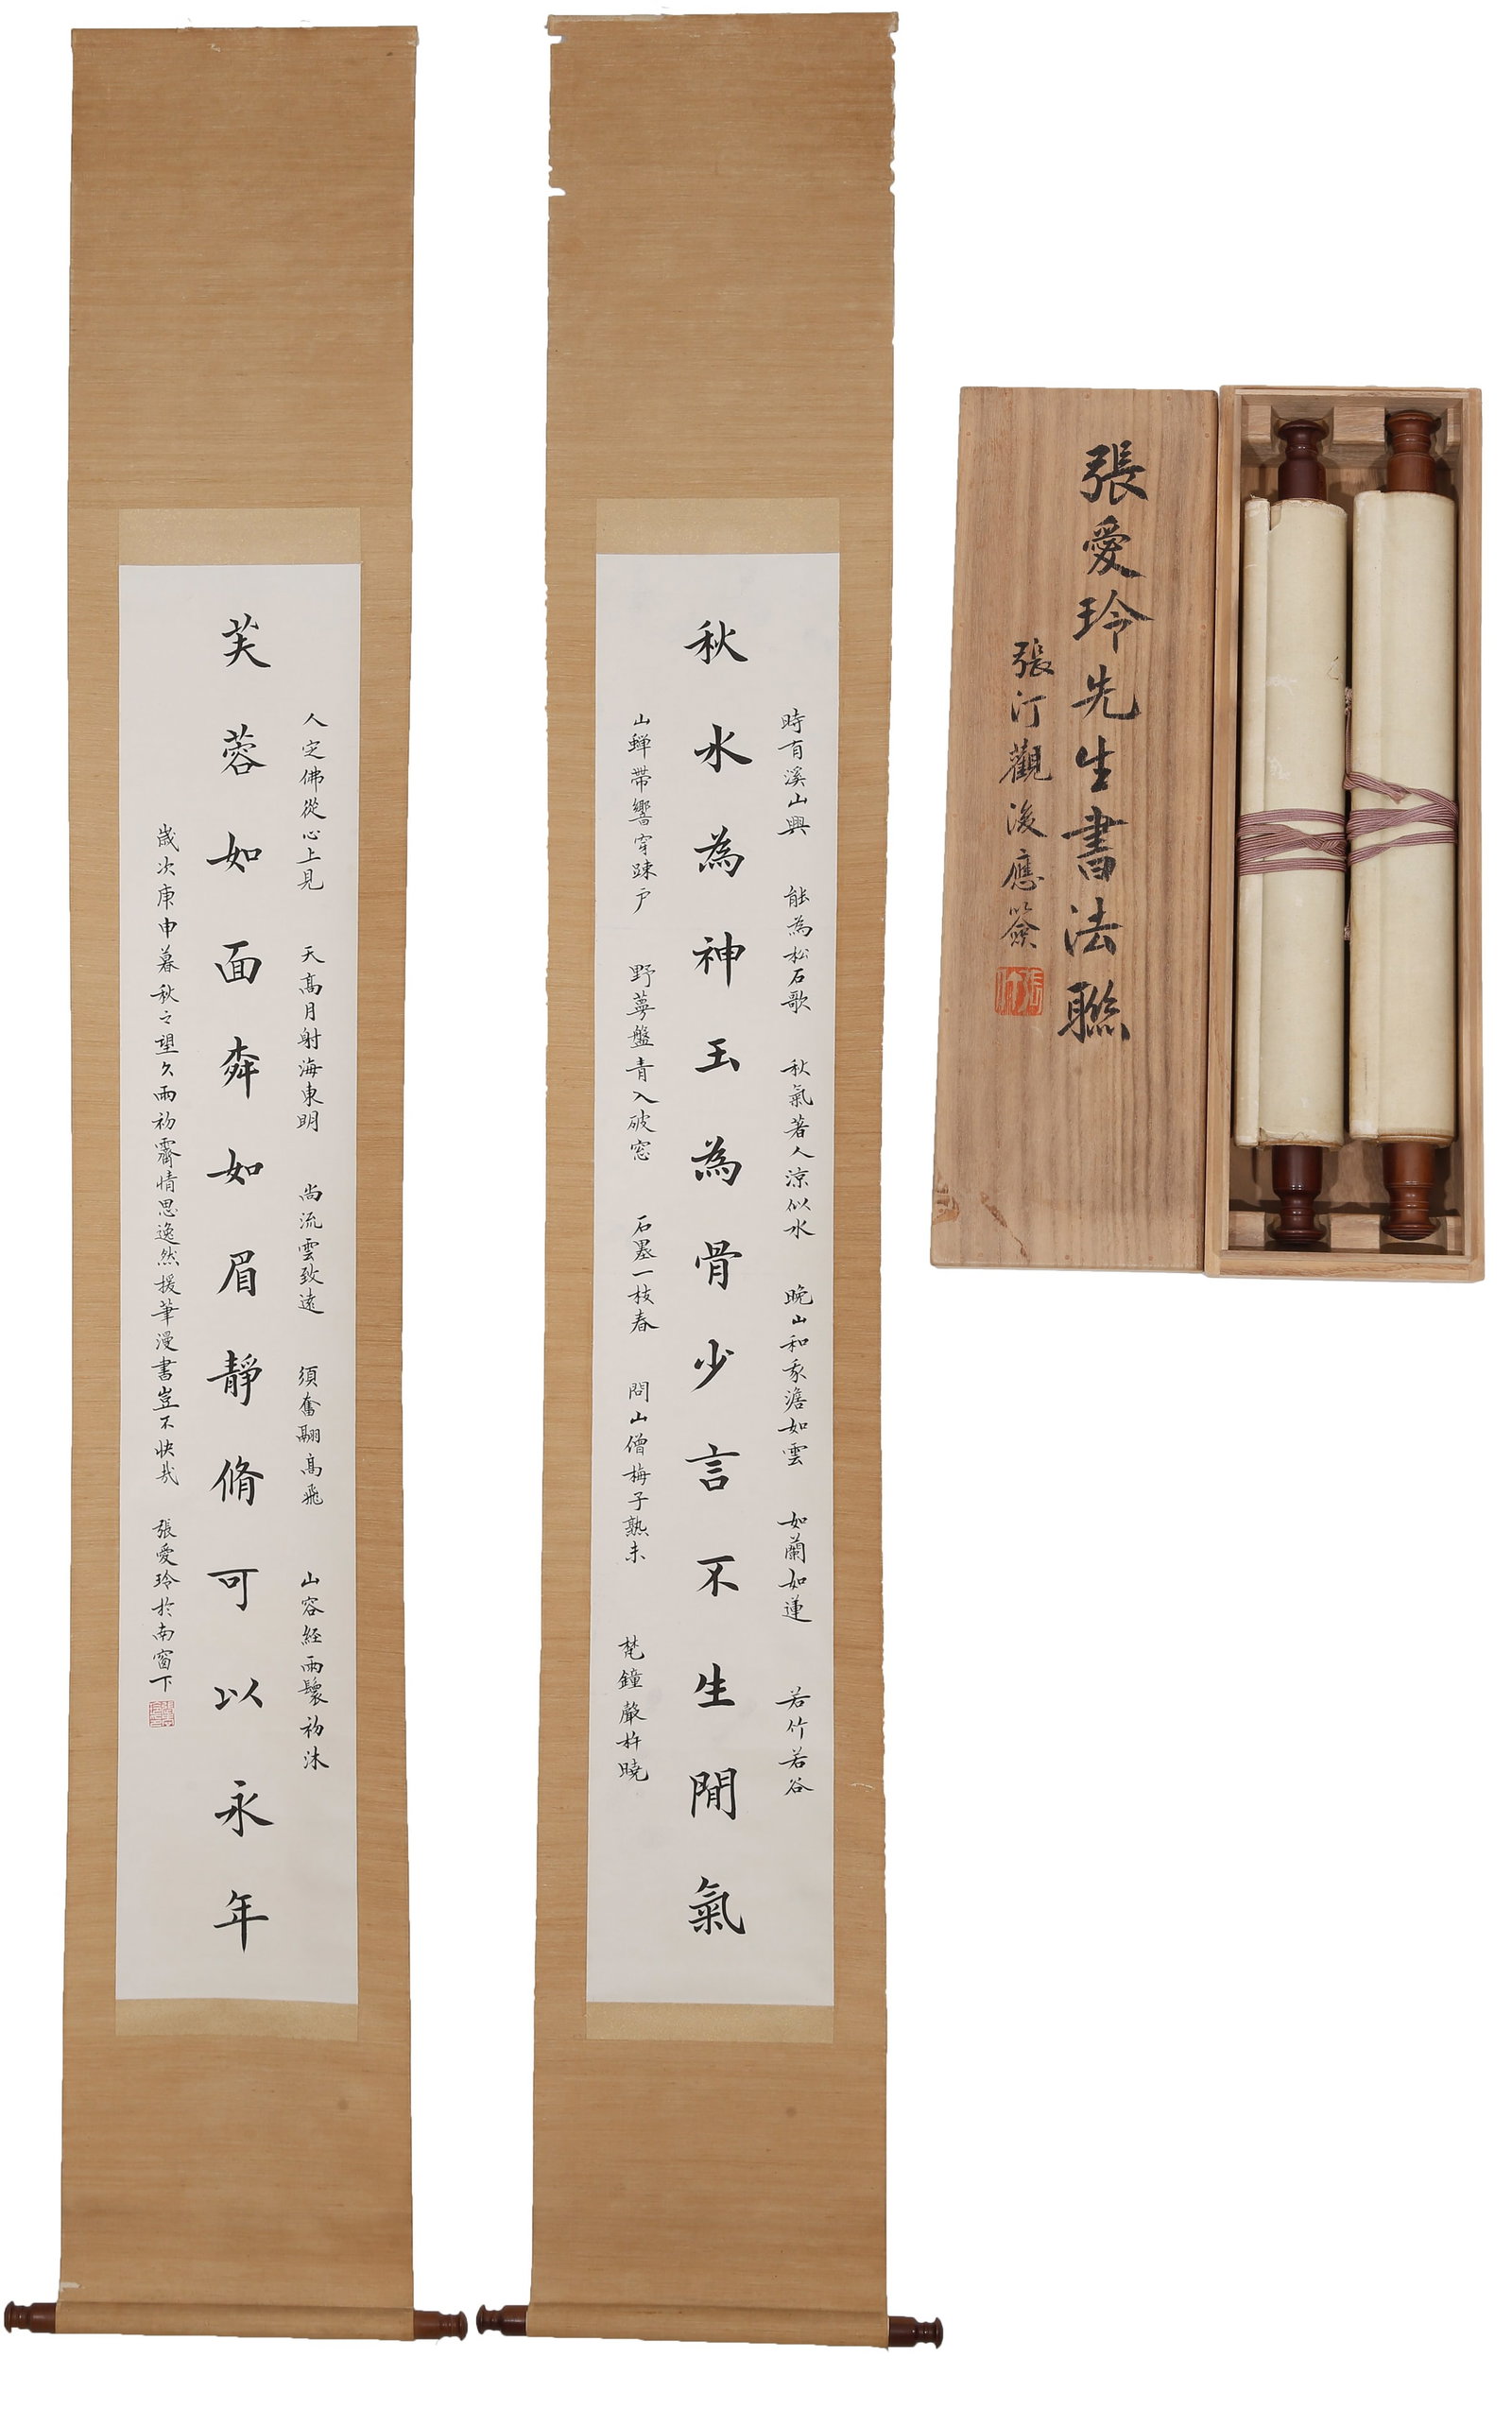 秋水為神玉為骨少言不生閒氣
時有溪山興 能為松石歌 秋氣著人涼似水 晚山和我澹如雲 如蘭如蓮 若竹若谷
山蟬帶響穿疎戶 野蔓盤青入破窓 石墨一枝春 問山僧梅子熟未 梵鐘聲杵曉
芙蓉如面柰如眉靜脩可以永年
人定佛從心上見 天高月射海東明 尚流雲致遠 須奮翮高飛 山容經雨鬟初沐
歲次庚申暮秋之望久雨初霽情思逸然援筆漫書豈不快哉 張愛玲於南窗下
張愛玲先生書法聯
張汀觀後應簽
張汀